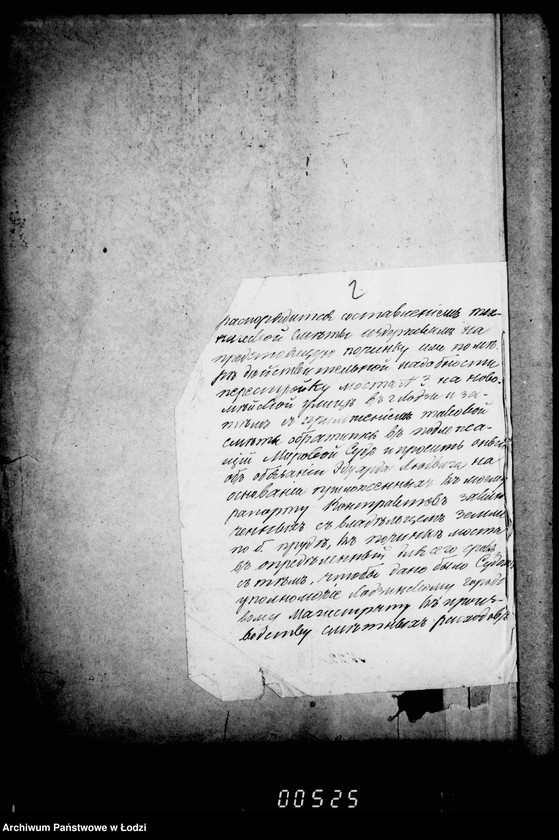 2
распорядится составленіемъ тех-
нической Смѣты издержкамъ на
предстоящую починку или по мѣ-
рѣ дѣйствительной надобности
перестройку моста № 3 на Ново-
мѣйской улицѣ въ г. Лодзи и за-
тѣмъ съ приложеніемъ таковой
смѣты обратится въ подлежа-
щій Мировой Судъ и просить оный
объ обязаніи Эдуарда Людвига на
основаніи приложенныхъ къ моему
рапорту Контрактовъ заклю-
ченныхъ съ владѣльцемъ земли
по б. прудѣ, къ починкѣ моста
въ опредѣленный для сего срокъ
съ тѣмъ, чтобы дано было Судомъ
уполномочіе Лодзинскому Городо-
вому Магистрату къ произ-
водству смѣтныхъ расходовъ
00525
Archiwum Państwowe w Łodzi